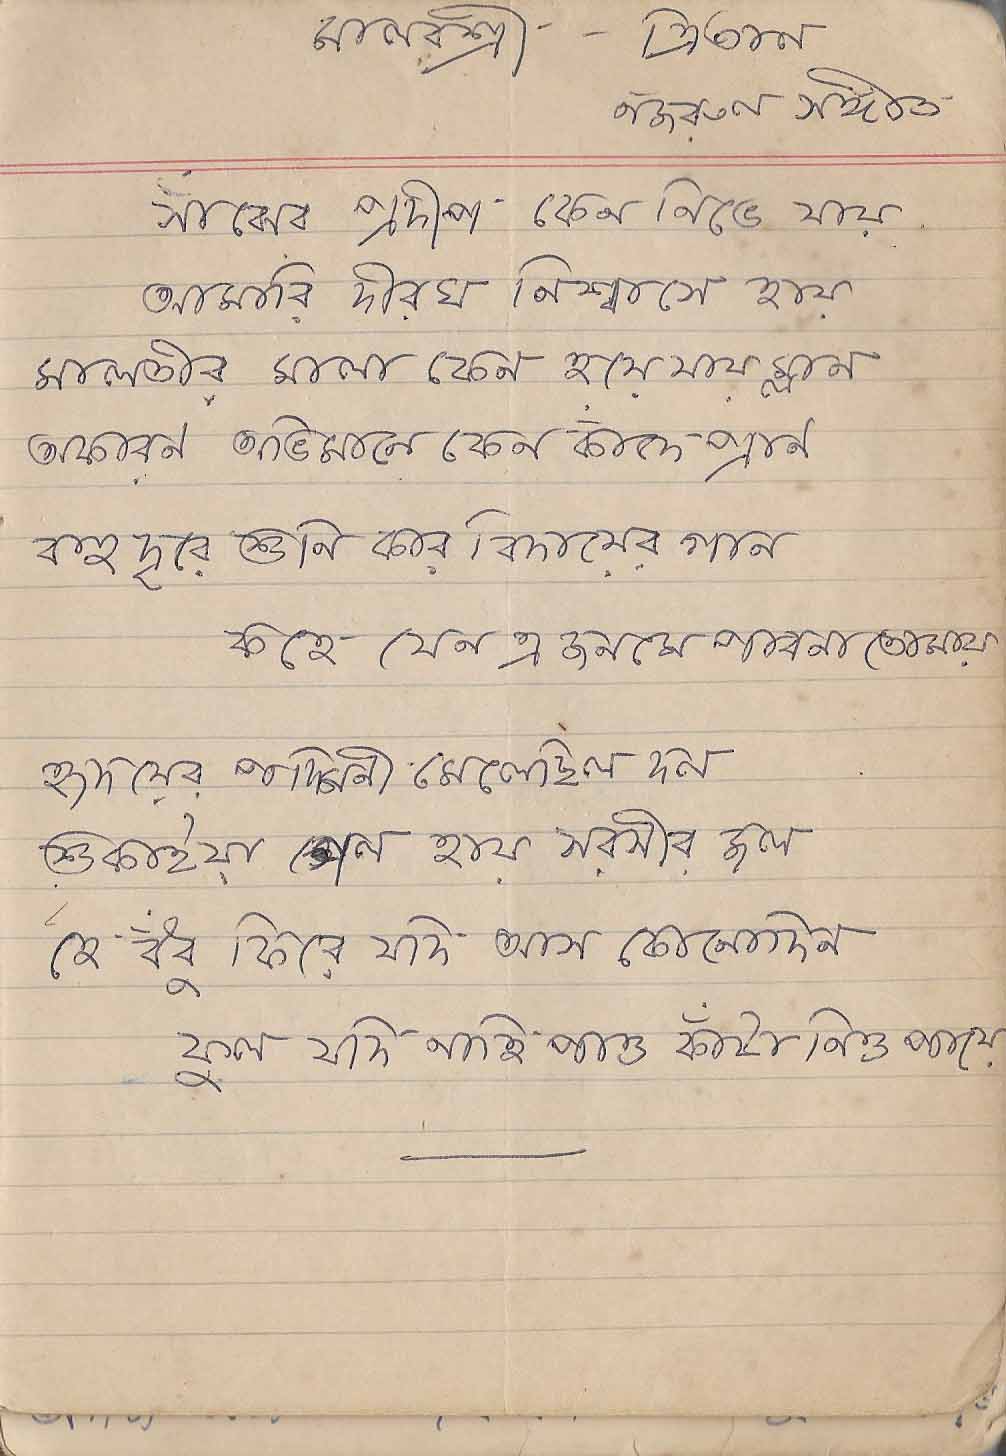 মালবশ্রী - ত্রিতাল
নজরুল সঙ্গীত
সাঁঝের প্রদীপ কেন নিভে যায়
আমারি দীরঘ নিশ্বাসে হায়
মালতীর মালা কেন হয়ে যায় ম্লান
অকারন অভিমানে কেন কাঁদে প্রান
বহু দূরে শুনি কার বিদায়ের গান
কহে যেন এ জনমে পাবনা তোমায়
হৃদয়ের পদ্মিনী মেলেছিল দল
শুকাইয়া গেল হায় সরসীর জল
হে বঁধু ফিরে যদি আস কোনোদিন
ফুল যদি নাহি পাও কাঁটা নিও পায়ে